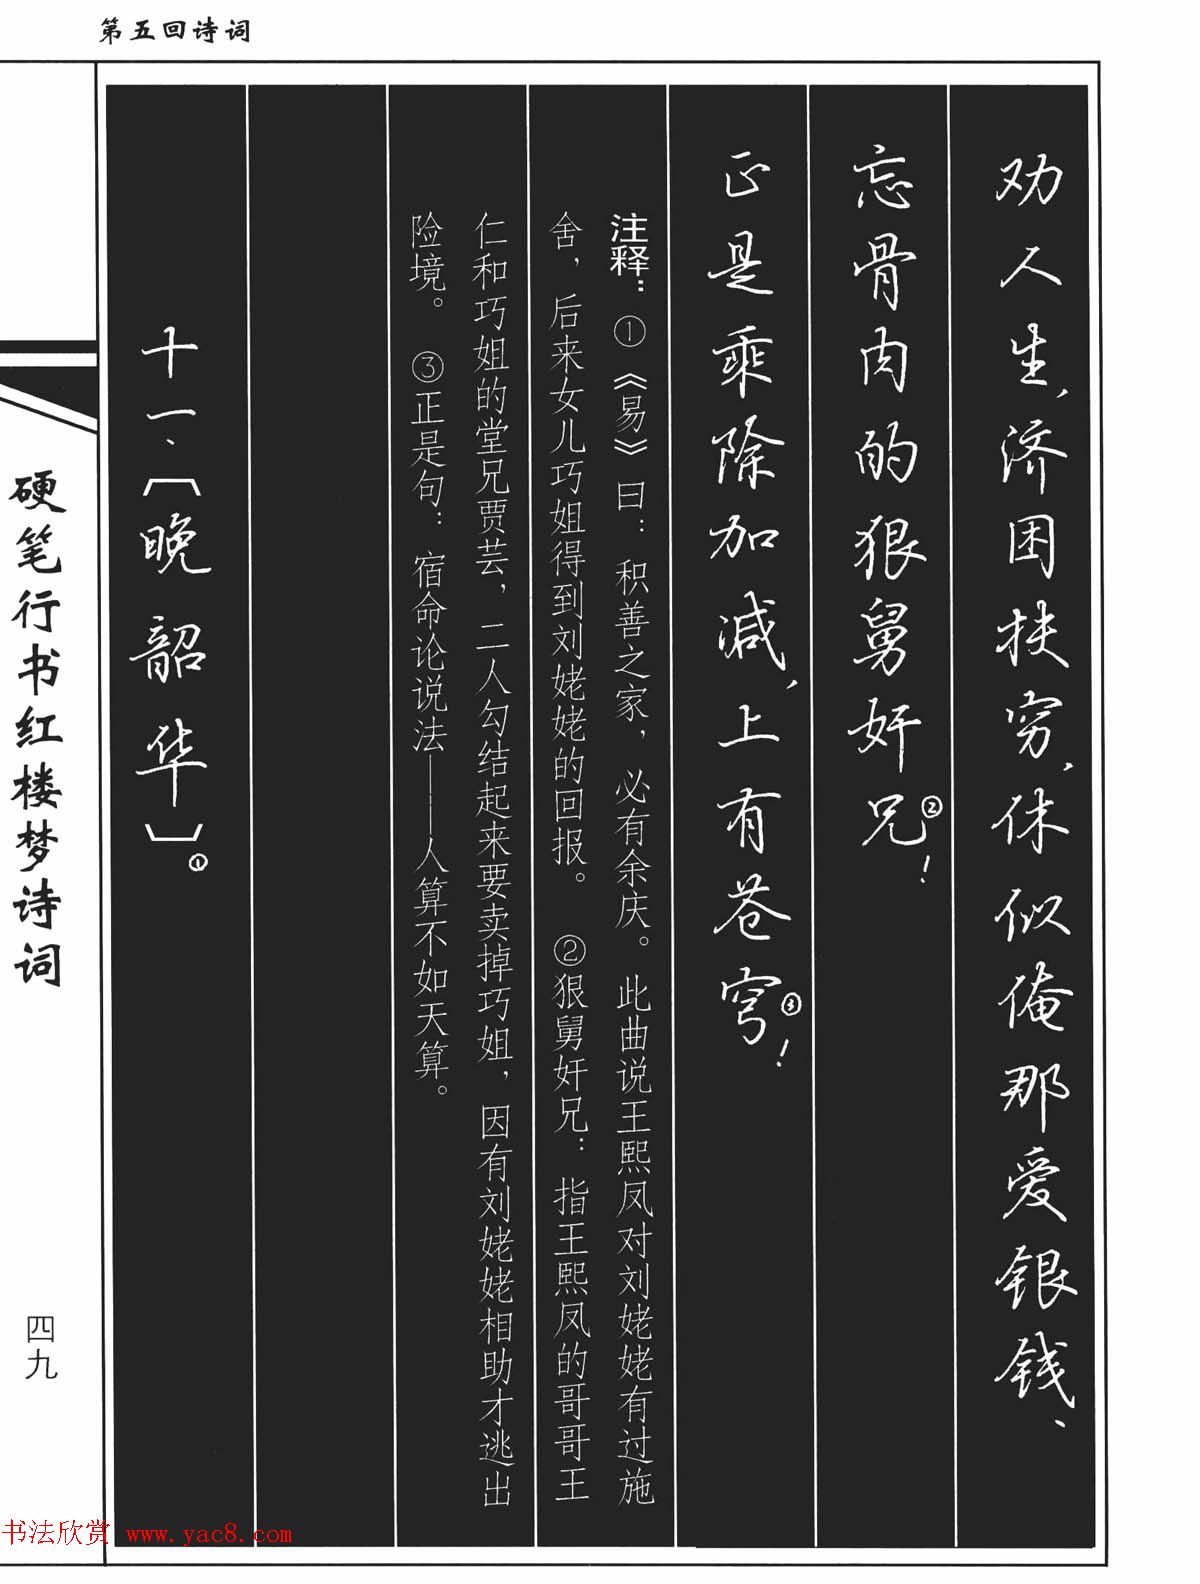 第五回诗词
劝人生,济困扶穷,休似俺那爱银钱、
忘骨肉的狠舅奸兄②!
正是乘除加减,上有苍穹③!
注释：①《易》曰：积善之家，必有余庆。此曲说王熙凤对刘姥姥有过施
舍，后来女儿巧姐得到刘姥姥的回报。②狠舅奸兄：指王熙凤的哥哥王
仁和巧姐的堂兄贾芸，二人勾结起来要卖掉巧姐，因有刘姥姥相助才逃出
险境。③正是句：宿命论说法——人算不如天算。
十一、〔晚韶华〕①
硬笔行书红楼梦诗词
四九
书法欣赏 www.yac8.com